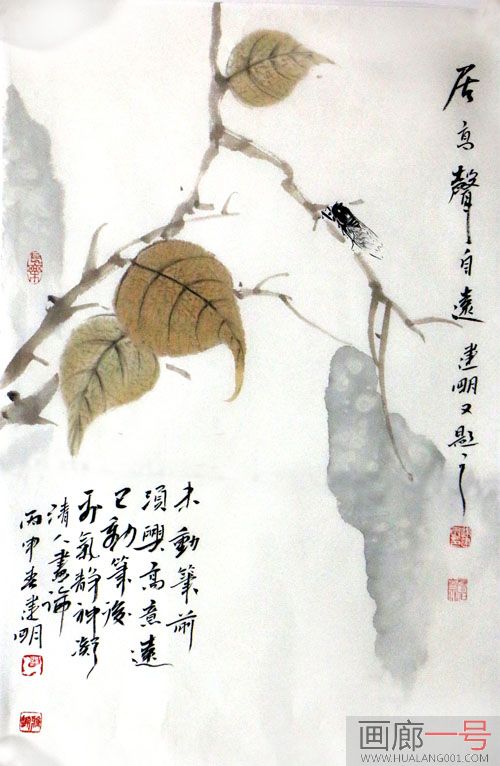 居高聲自遠 建明又題之
未動筆前
須興高意遠
已動筆後
要氣靜神凝
清人畫論
丙申春建明
画廊一号
WWW.HUALANG001.COM